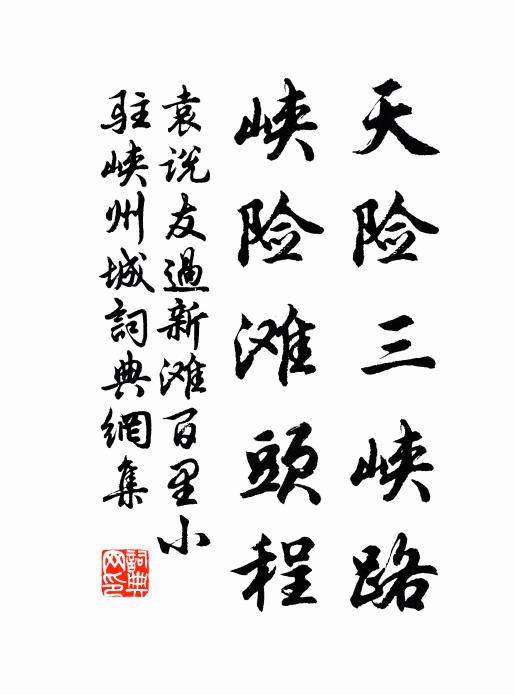 天险三峡路
峡险滩頭程
袁说友過新滩百里小
驻峡州城詞典網集
詞典
网印